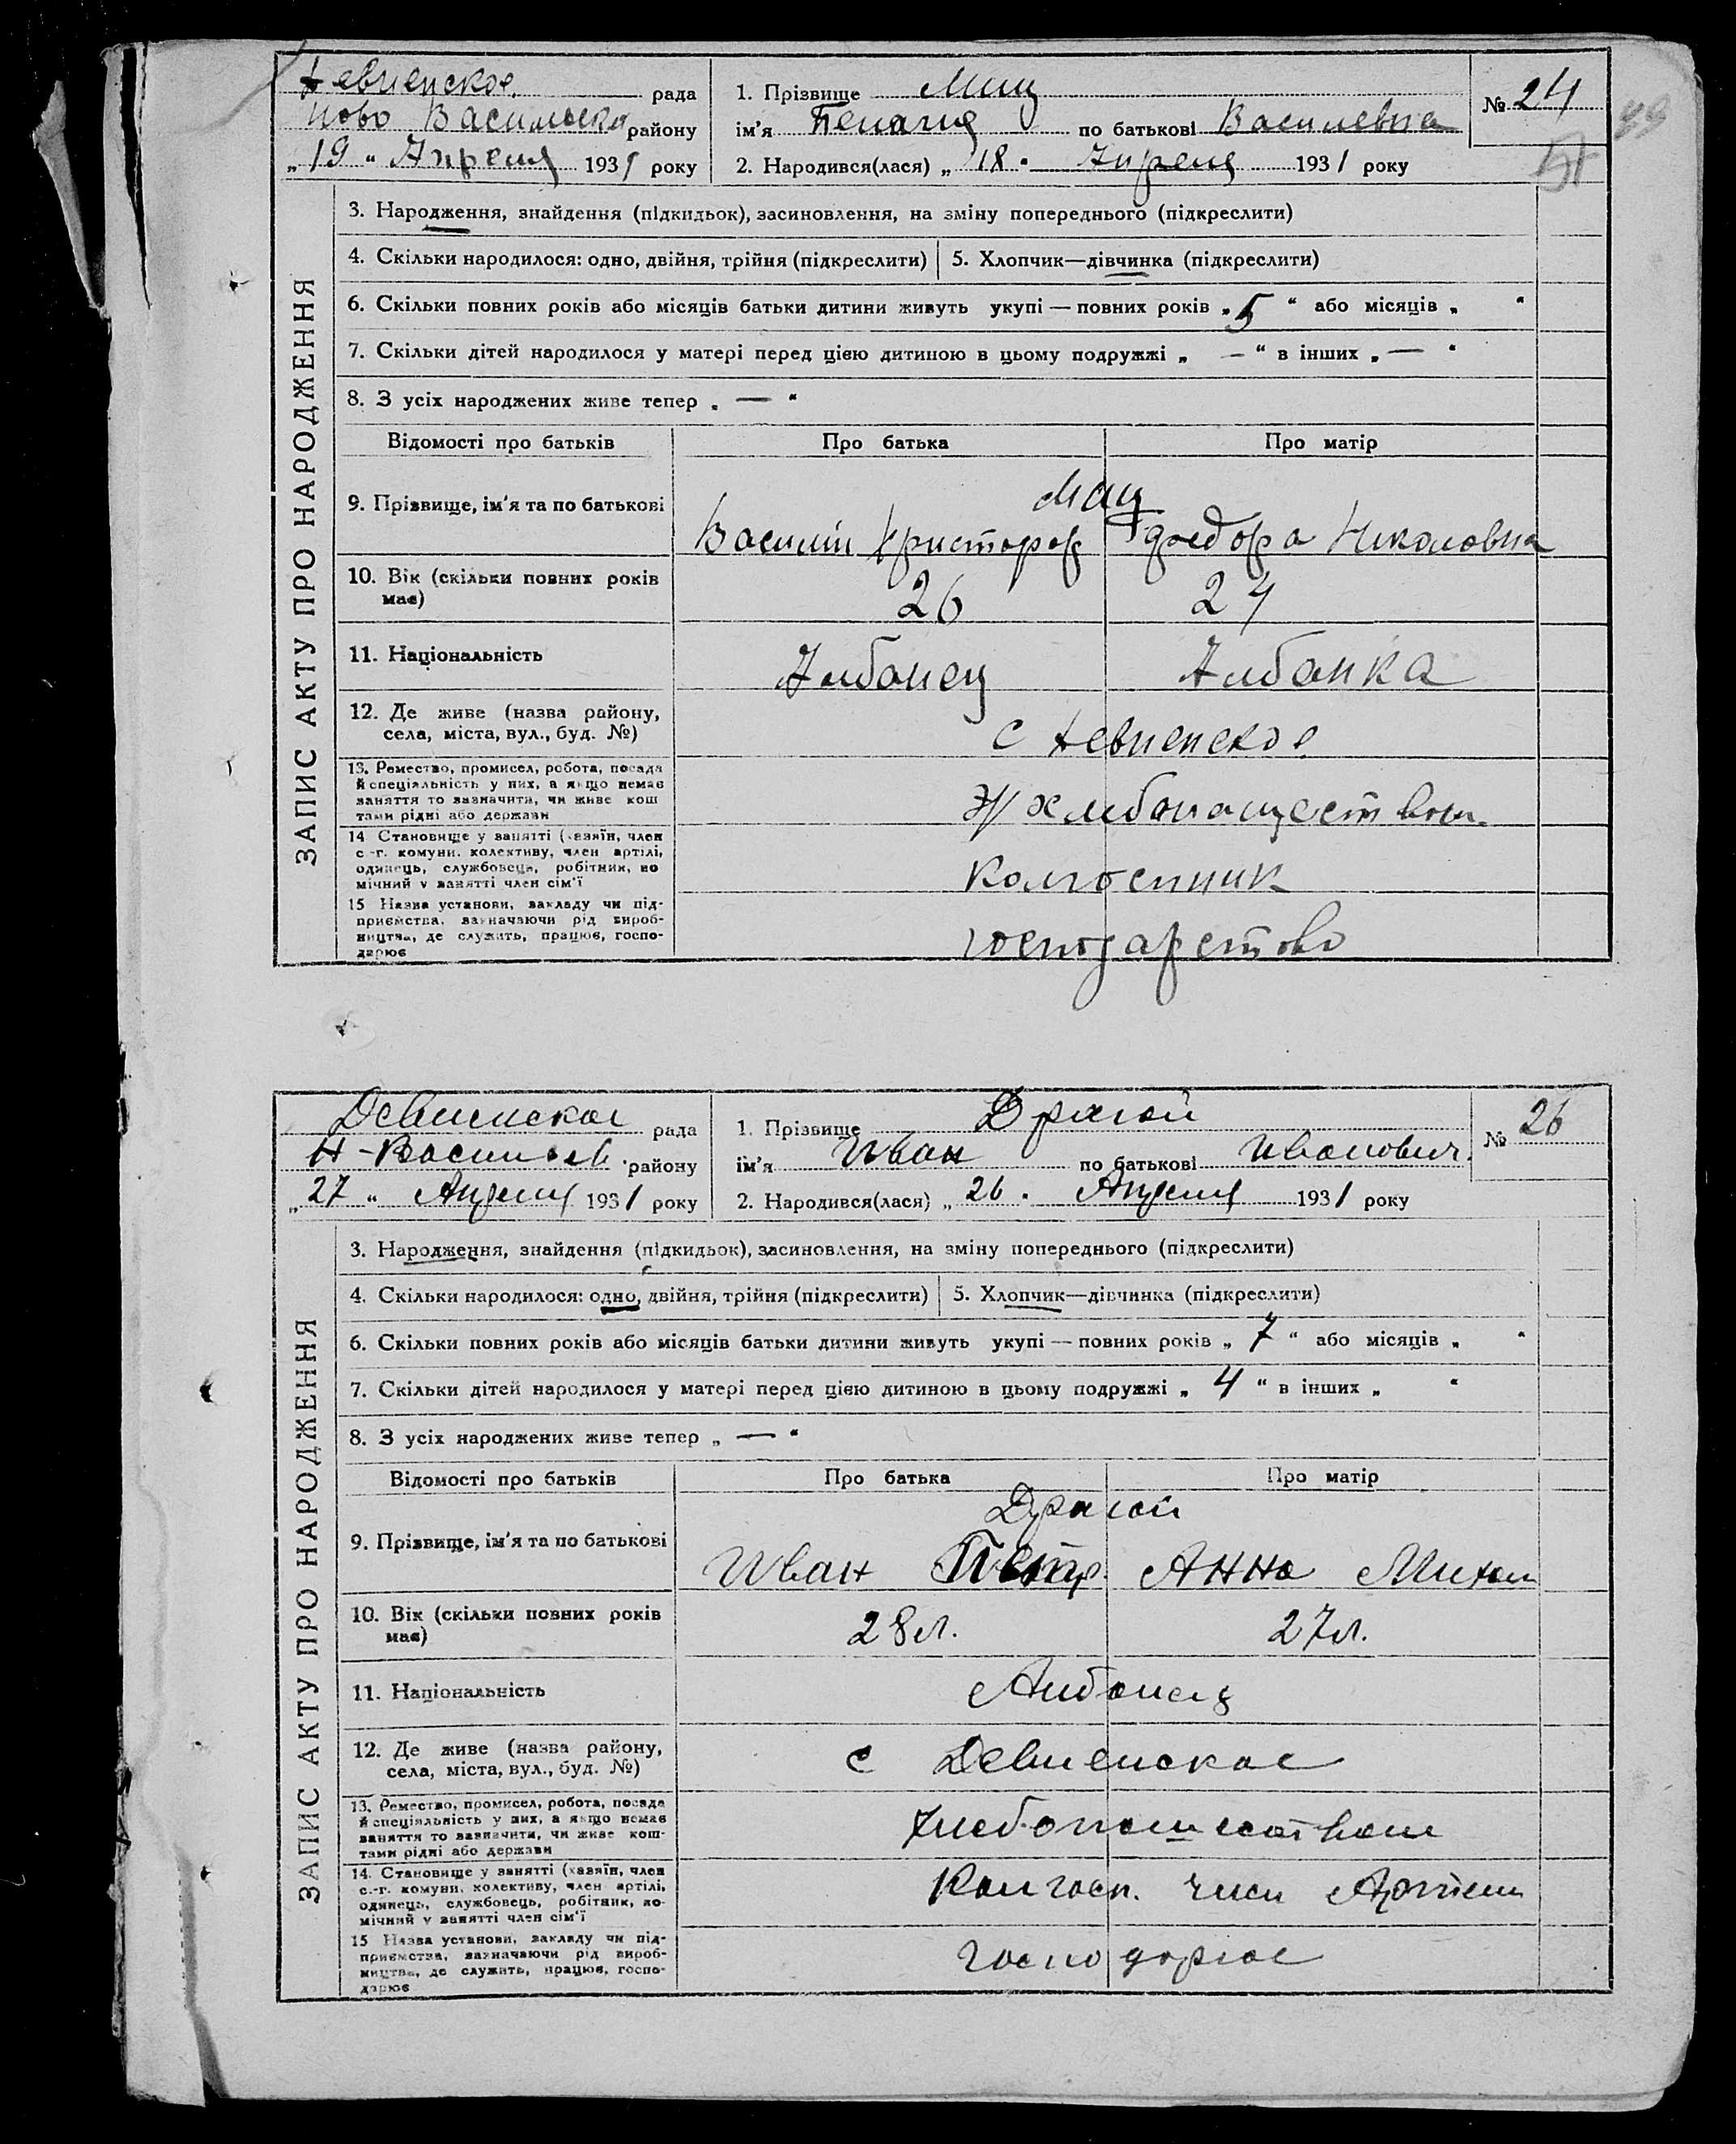 Девненское рада
Ново Васильевск району
„19“ Апреля 1931 року
1. Прізвище Мищ
ім'я Пелагия по батькові Василевна
2. Народився(лася) „18“ Апреля 1931 року
№ 24
99
ЗАПИС АКТУ ПРО НАРОДЖЕННЯ
3. Народження, знайдення (підкидьок), засиновлення, на зміну попереднього (підкреслити)
4. Скільки народилося: одно, двійня, трійня (підкреслити) 5. Хлопчик—дівчинка (підкреслити)
6. Скільки повних років або місяців батьки дитини живуть укупі — повних років „5“ або місяців „ “
7. Скільки дітей народилося у матері перед цією дитиною в цьому подружжі „—“ в інших „—“
8. З усіх народжених живе тепер „—“
Відомості про батьків Про батька Про матір
9. Прізвище, ім'я та по батькові
Мищ
Василий Христофор Федора Николовна
10. Вік (скільки повних років має) 26 24
11. Національність Албанец Албанка
12. Де живе (назва району, села, міста, вул., буд. №) с Девненское
13. Ремество, промисел, робота, посада
й спеціяльність у них, а якщо немає
заняття то зазначити, чи живе кош
тами рідні або держави
хлебопашеством
14 Становище у занятті (хазяїн, член
с.-г. комуни, колективу, член артілі,
одинець, службовець, робітник, по
мічний у занятті член сім'ї
Колгоспник
15 Назва установи, закладу чи під-
приємства, зазначаючи рід вироб-
ництва, де служить, працює, госпо-
дарює
господарство
Девненское рада
Н-Васильев. району
„27“ Апреля 1931 року
1. Прізвище Драгой
ім'я Иван по батькові Иванович.
2. Народився(лася) „26“ Апреля 1931 року
№ 26
ЗАПИС АКТУ ПРО НАРОДЖЕННЯ
3. Народження, знайдення (підкидьок), засиновлення, на зміну попереднього (підкреслити)
4. Скільки народилося: одно, двійня, трійня (підкреслити) 5. Хлопчик—дівчинка (підкреслити)
6. Скільки повних років або місяців батьки дитини живуть укупі — повних років „7“ або місяців „ “
7. Скільки дітей народилося у матері перед цією дитиною в цьому подружжі „4“ в інших „ “
8. З усіх народжених живе тепер „—“
Відомості про батьків Про батька Про матір
9. Прізвище, ім'я та по батькові
Драгой
Иван Петр. Анна Михаил
10. Вік (скільки повних років має) 28 л. 27 л.
11. Національність Албанец
12. Де живе (назва району, села, міста, вул., буд. №) с Девненское
13. Ремество, промисел, робота, посада
й спеціяльність у них, а якщо немає
заняття то зазначити, чи живе кош-
тами рідні або держави
Хлебопашеством
14. Становище у занятті (хазяїн, член
с.-г. комуни, колективу, член артілі,
одинець, службовець, робітник, по-
мічний у занятті член сім'ї
Колгосп. член Артели
15 Назва установи, закладу чи під-
приємства, зазначаючи рід вироб-
ництва, де служить, працює, госпо-
дарює
господарює